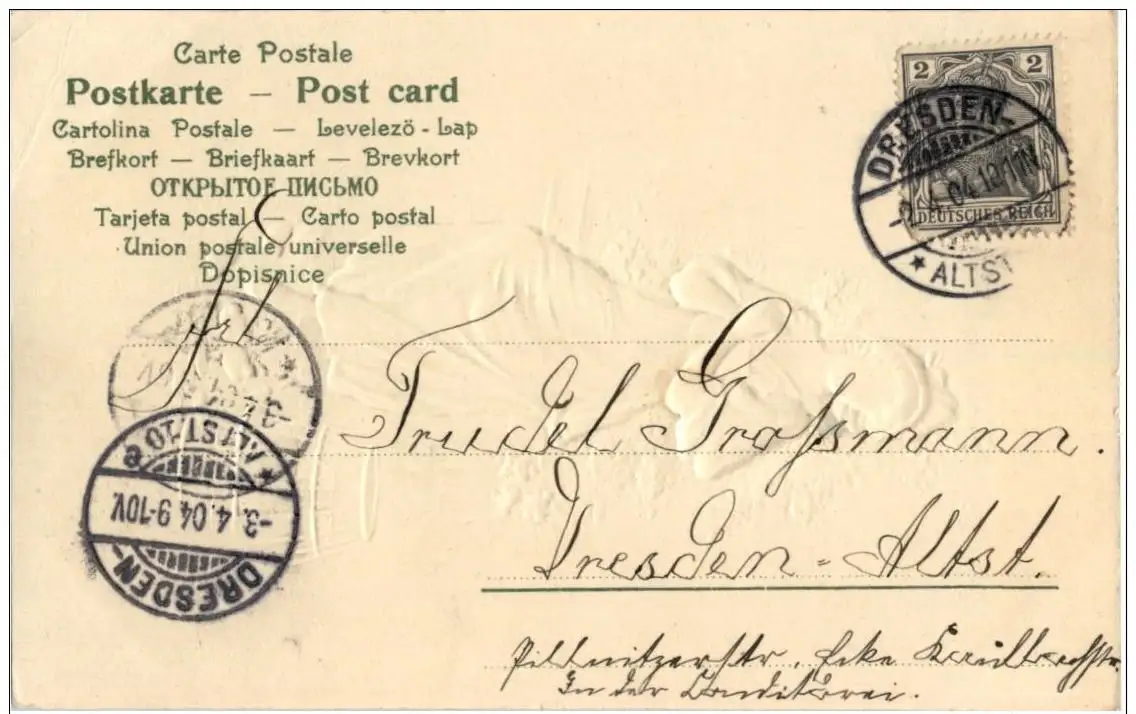 Carte Postale
Postkarte — Post card
Cartolina Postale — Levelező-Lap
Brefkort — Briefkaart — Brevkort
ОТКРЫТОЕ ПИСЬМО
Tarjeta postal — Carto postal
Union postale universelle
Dopisnice
2 2
DEUTSCHES REICH
DRESDEN-
4.04.
* ALTST
Frl.
Trudel Großmann.
Dresden-Altst.
Pillnitzerstr. Ecke
In der Conditorei.
* ALTST. 10 e
-3.4.04 9-10V.
DRESDEN-